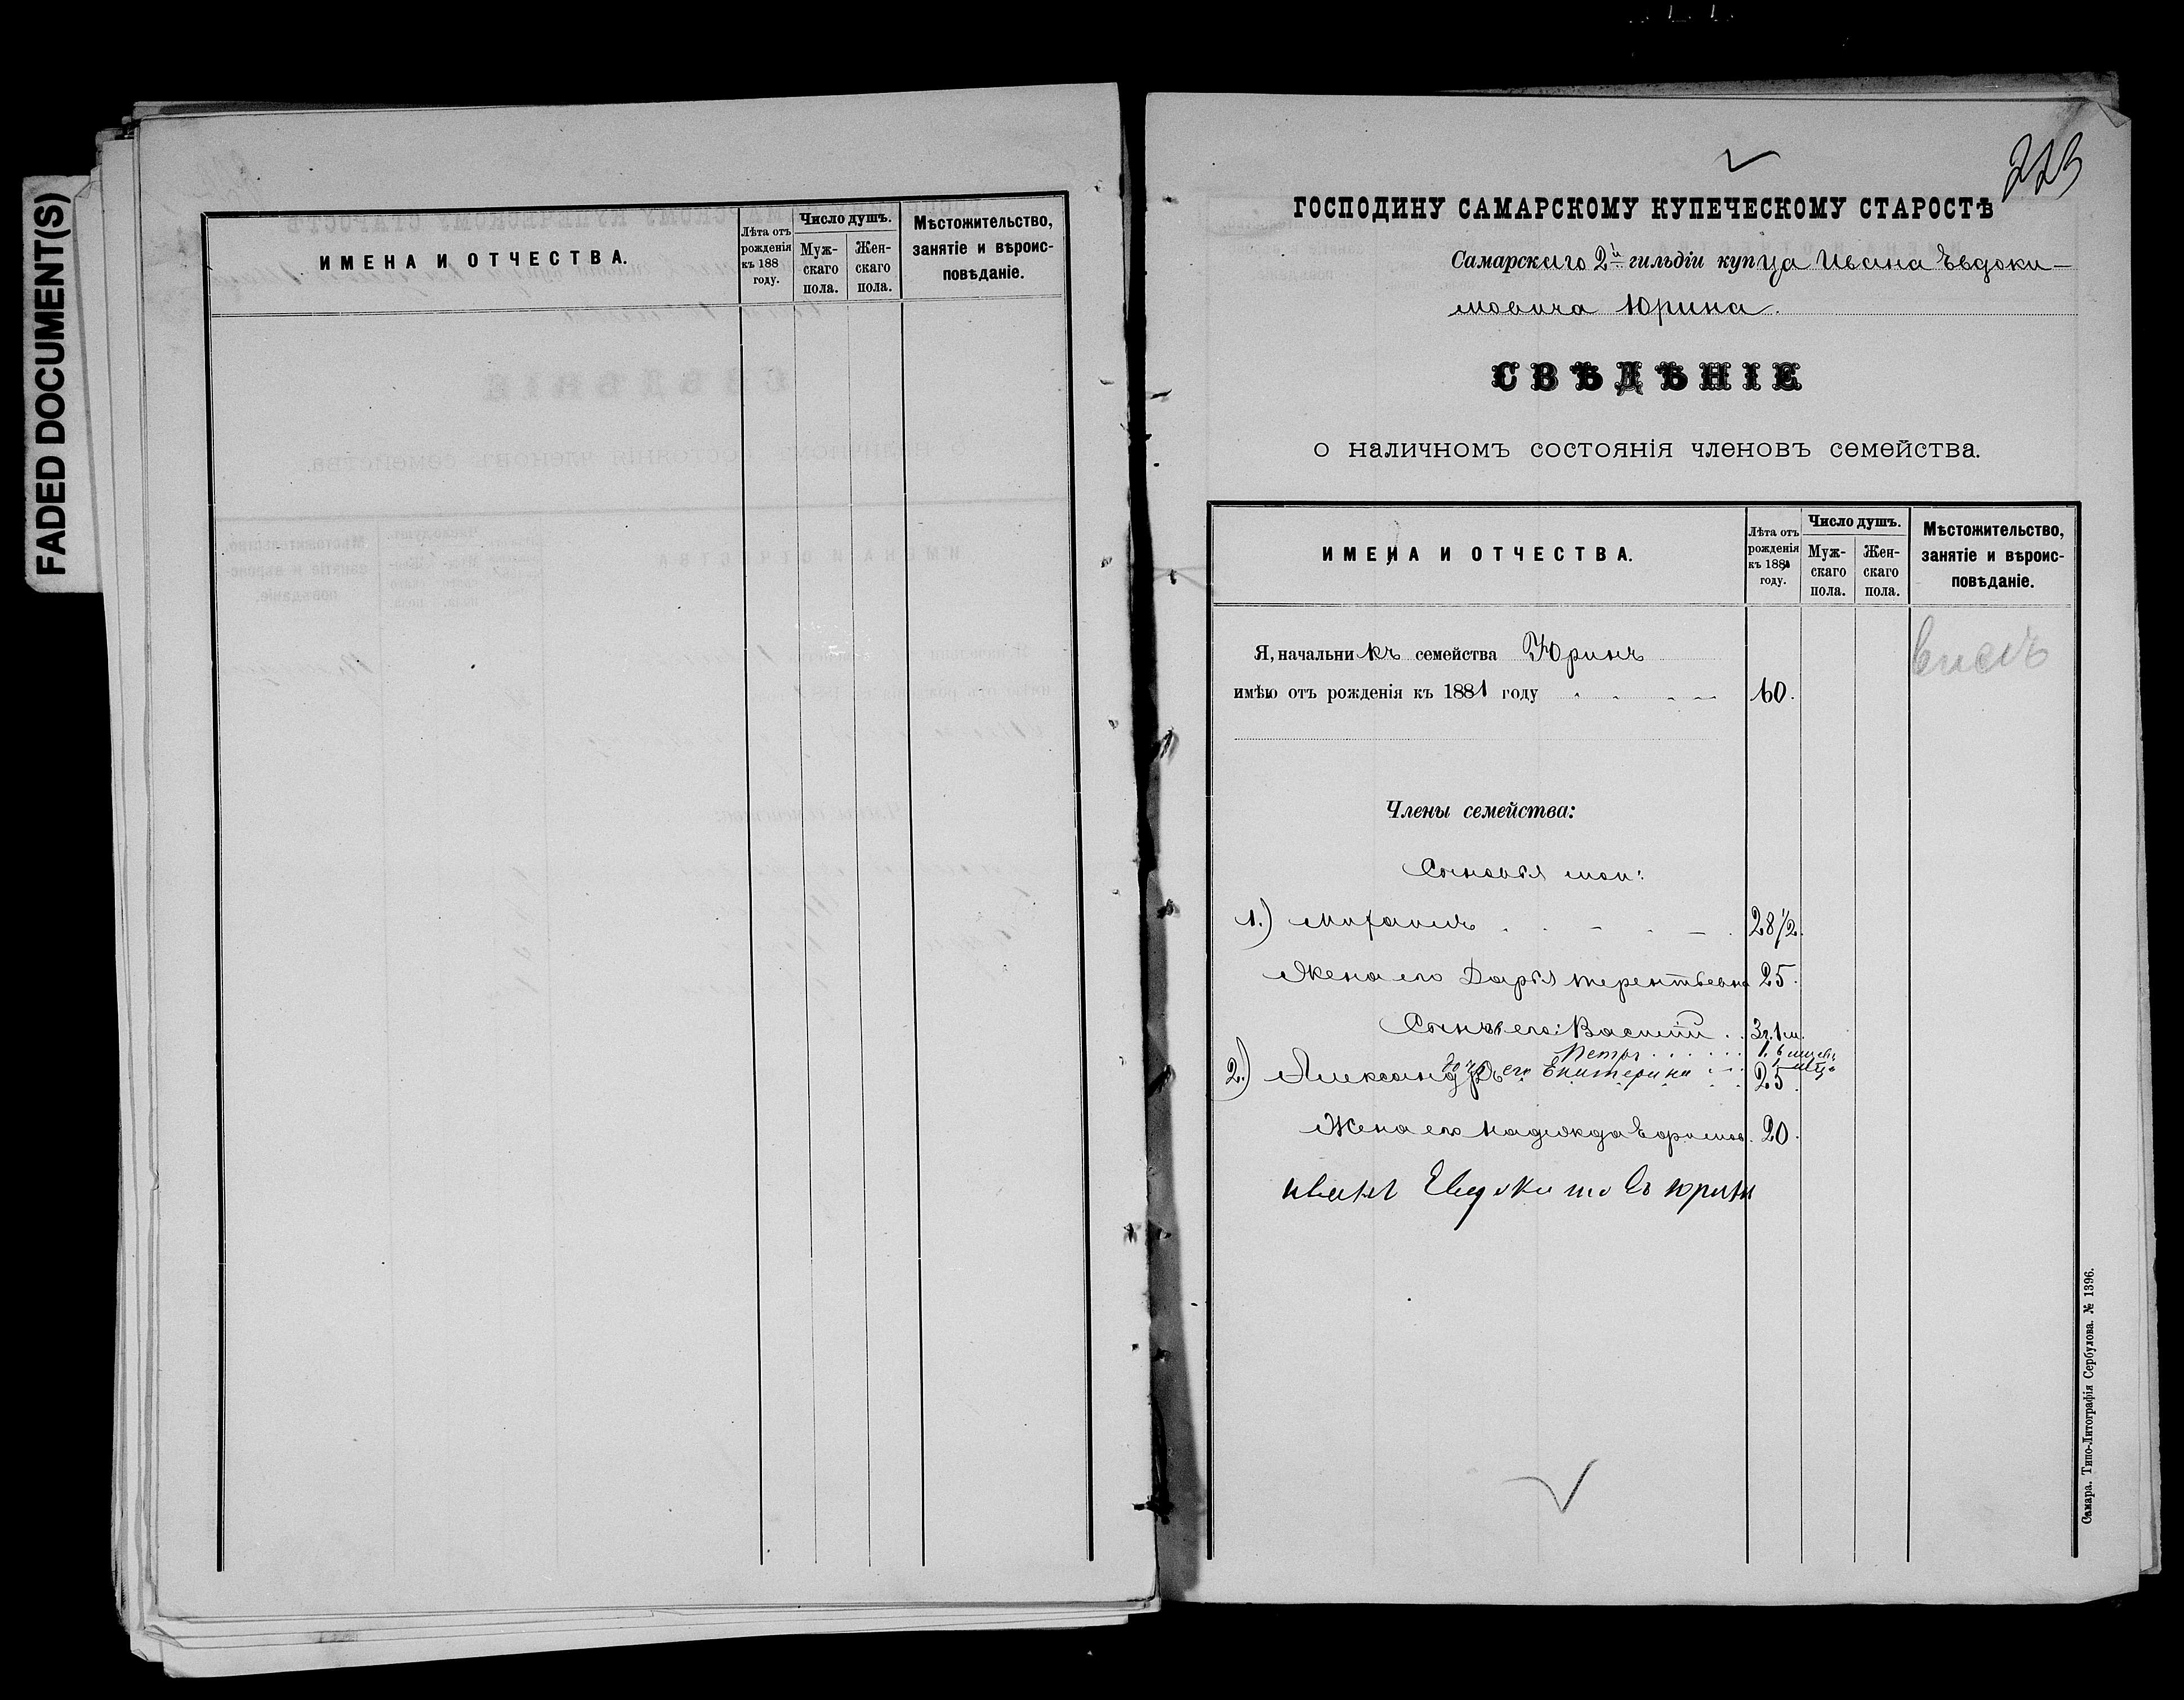 FADED DOCUMENT(S)
ИМЕНА И ОТЧЕСТВА.
Лѣта отъ рожденія къ 188 году.
Число душъ.
Муж-скаго пола.
Жен-скаго пола.
Мѣстожительство, занятіе и вѣроис-повѣданіе.
223
ГОСПОДИНУ САМАРСКОМУ КУПЕЧЕСКОМУ СТАРОСТѢ
Самарскаго 2й гильдіи купца Ивана Евдоки-
мовича Юрина.
СВѢДѢНІЕ
о наличномъ состоянія членовъ семейства.
ИМЕНА И ОТЧЕСТВА.
Лѣта отъ рожденія къ 1881 году.
Число душъ.
Муж-скаго пола.
Жен-скаго пола.
Мѣстожительство, занятіе и вѣроис-повѣданіе.
Я, начальникъ семейства Юринъ
имѣю отъ рожденія къ 1881 году 60.
Члены семейства:
Сыновья мои:
1.) Михаилъ 28 1/2.
Жена его Дарья Терентьевна 25.
Сынъ его: Василій 3г. 1 м.
Петръ 1. 6 мѣс.
дочь его Екатерина
2.) Александръ 25.
Жена его Надежда 20.
иванъ Евдокимовъ юринъ
Самара. Типо-Литографія Сербулова. № 1396.